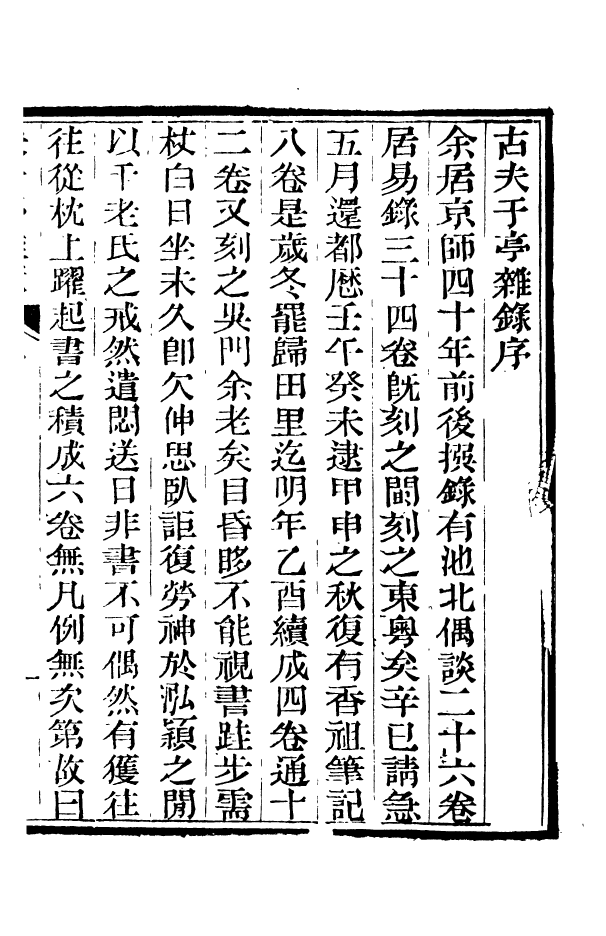 古夫于亭雜錄序
余居京師四十年前後撰錄有池北偶談二十六卷
居易錄三十四卷旣刻之閩刻之東粵矣辛巳請急
五月還都厯壬午癸未逮甲申之秋復有香祖筆記
八卷是歲冬罷歸田里迄明年乙酉續成四卷通十
二卷又刻之吳門余老矣目昏眵不能視書跬步需
杖白日坐未久卽欠伸思臥詎復勞神於泓穎之閒
以干老氏之戒然遣悶送日非書不可偶然有獲往
往從枕上躍起書之積成六卷無凡例無次第故曰
一